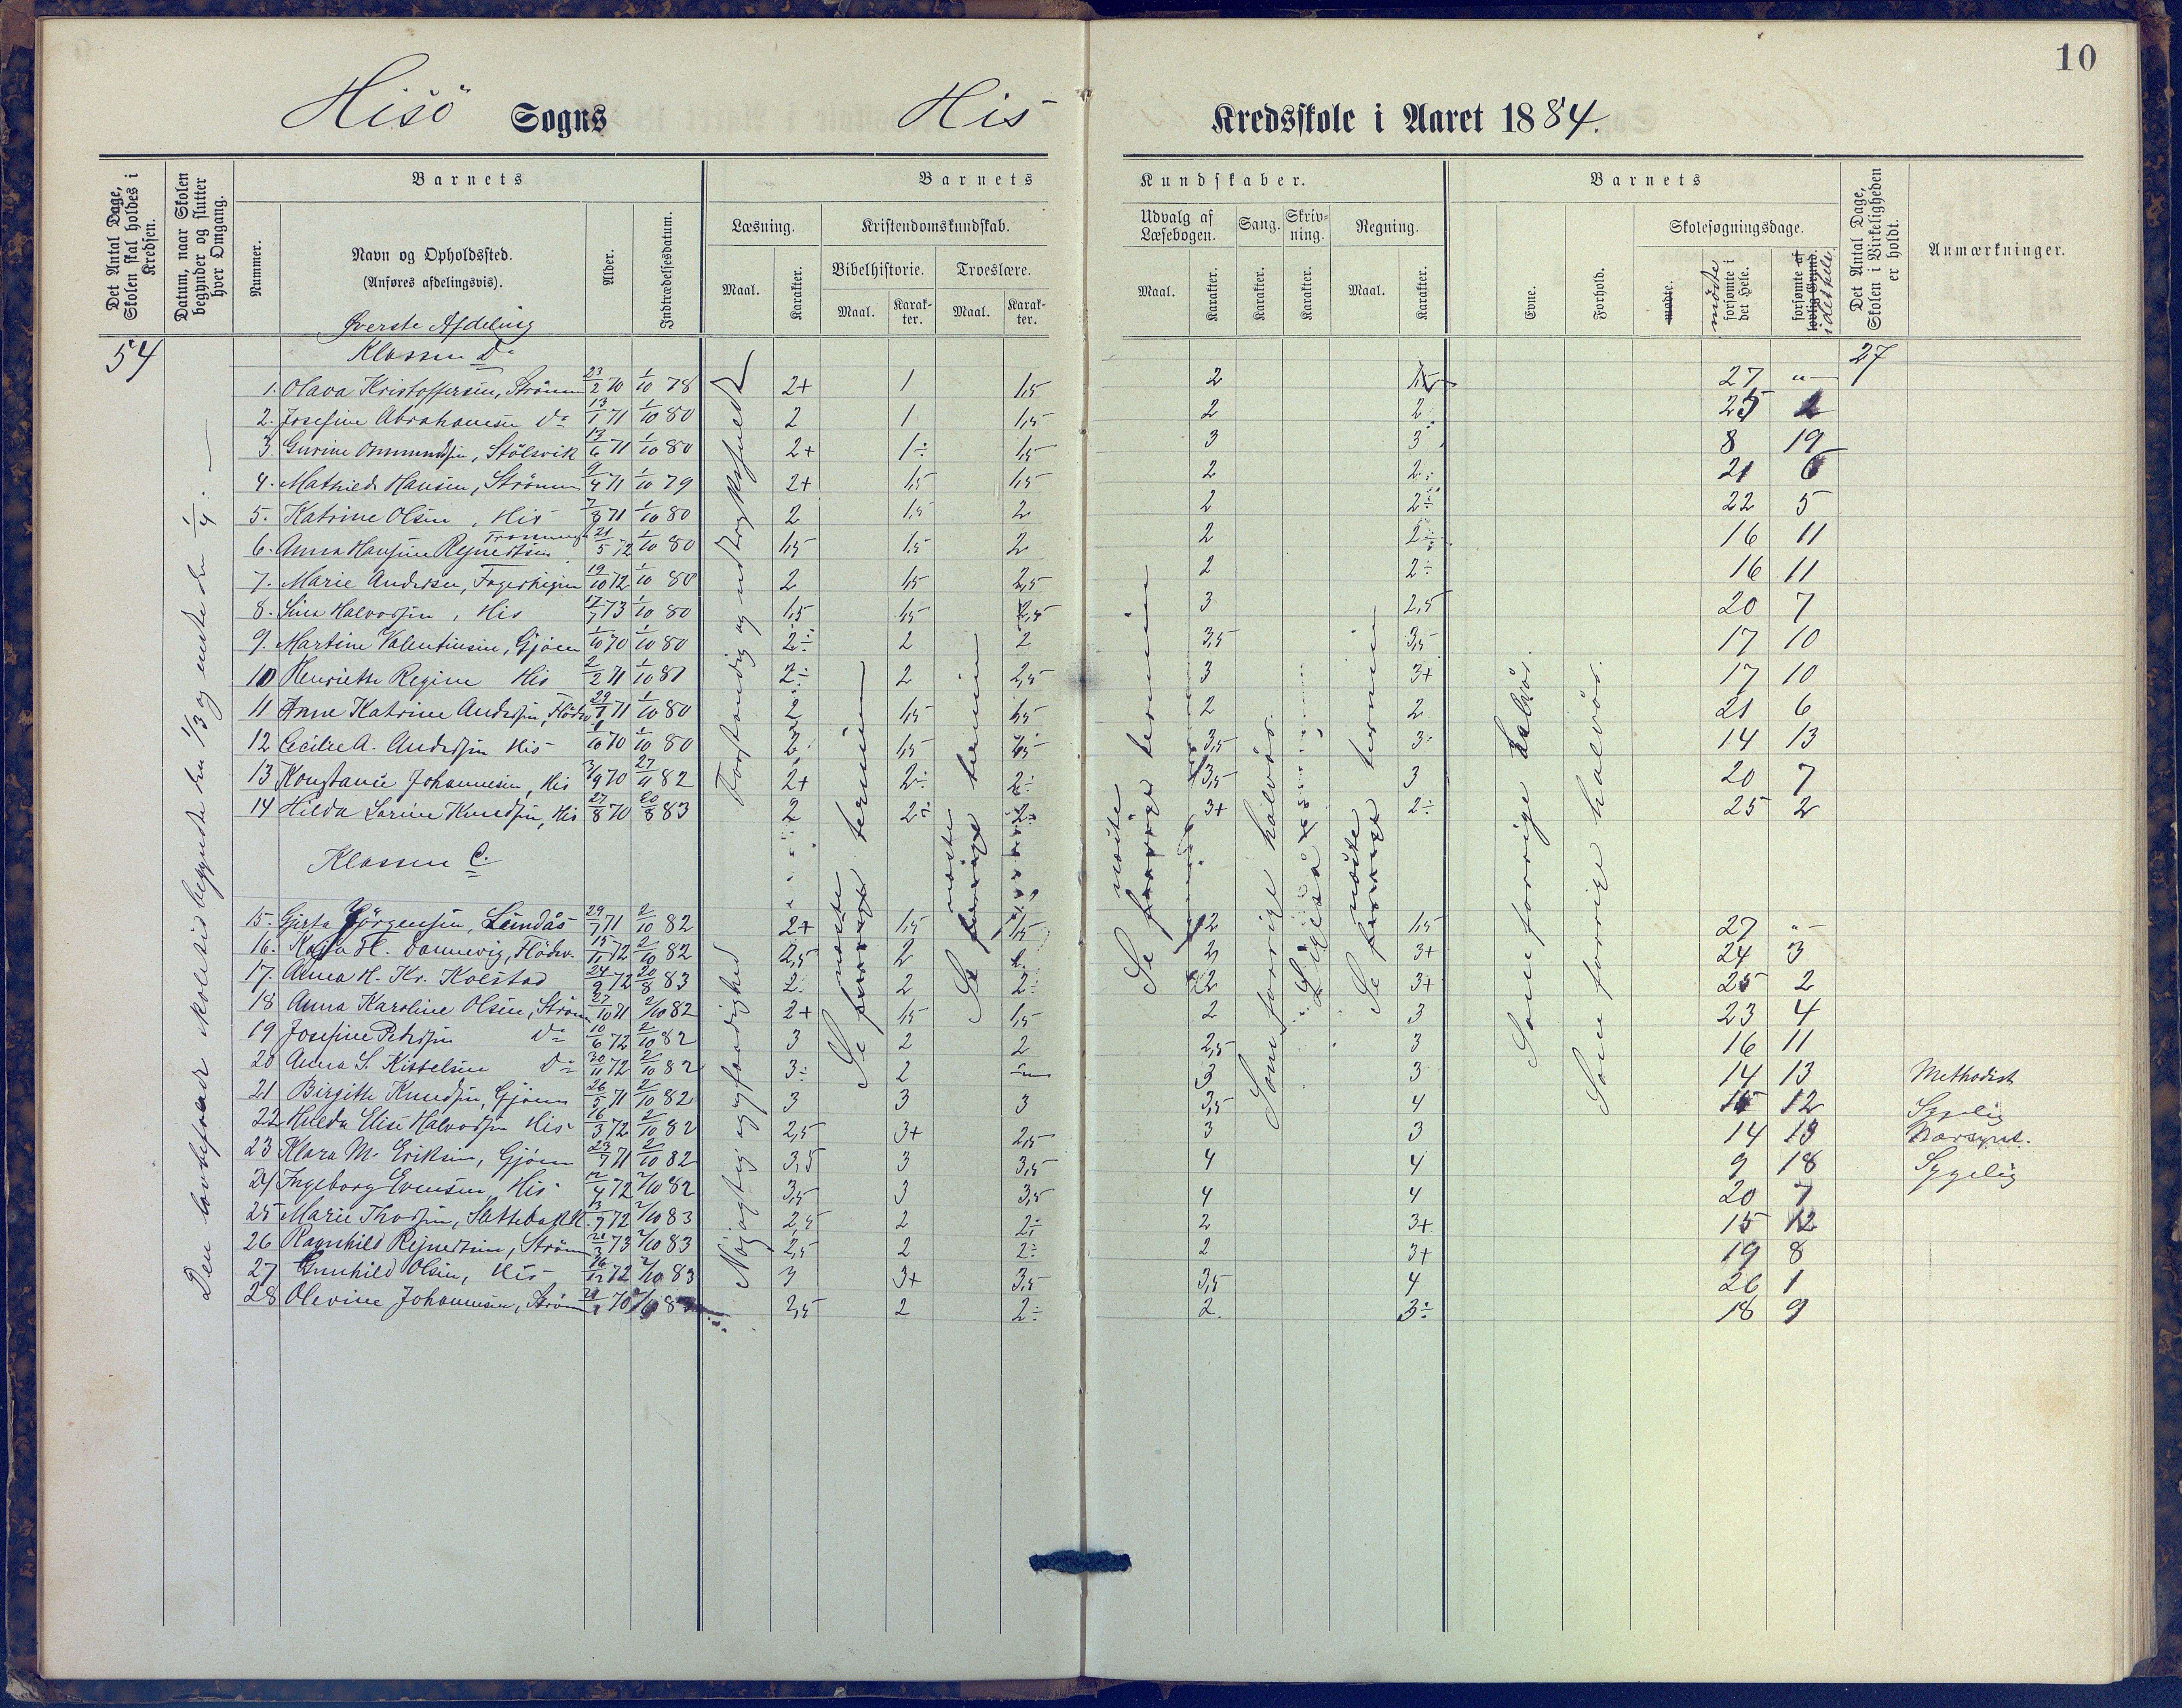 10
Hisö Sogns His Kredsskole i Aaret 1884.
Det Antal Dage, Skolen skal holdes i Kredsen.
Datum, naar Skolen begynder og slutter hver Omgang.
Barnets
Nummer.
Navn og Opholdssted.
(Anføres afdelingsvis).
Alder.
Indtrædelsesdatum.
Barnets Kundskaber.
Læsning.
Maal.
Karakter.
Kristendomskundskab.
Bibelhistorie.
Maal.
Karakter.
Troeslære.
Maal.
Karakter.
Udvalg af Læsebogen.
Maal.
Karakter.
Sang.
Karakter.
Skrivning.
Karakter.
Regning.
Maal.
Karakter.
Barnets
Evne.
Forhold.
Skolesøgningsdage.
mødte.
mödte forsømte i det Hele.
forsømte af lovlig Grund. i det hele
Det Antal Dage, Skolen i Virkeligheden er holdt.
Anmærkninger.
Øverste Afdeling
54 Klassen D. 27
1. Olava Kristoffersen, Strömm 23/2 70 1/10 78 2+ 1 1,5 2 1,5 27 "
2. Josefine Abrahamsen do 13/1 71 1/10 80 2 1 1,5 2 2 25 2
3. Gurine Ommundsen, Stölsvik 17/6 71 1/10 80 2+ 1÷ 1,5 3 3 8 19
4. Mathilde Hansen, Strömm 9/4 71 1/10 79 2+ 1,5 1,5 2 2÷ 21 6
5. Katrine Olsen, His 7/8 71 1/10 80 2 1,5 2 2 2÷ 22 5
6. Anna Hansine Reynertsen 21/5 72 1/10 80 1,5 1,5 2 2 2÷ 16 11
7. Marie Andersen, 19/10 72 1/10 80 2 1,5 2,5 2 2÷ 16 11
8. Sina Halvorsen, His 17/7 73 1/10 80 1,5 1,5 2,5 3 2,5 20 7
9. Martine Valentinsen, Gjöen 1/10 70 1/10 80 2÷ 2 2 3,5 3,5 17 10
10 Henriette Regine His 2/2 71 1/10 81 2÷ 2 2,5 3 3+ 17 10
11 Anne Katrine Andersen, 1/10 80 2 1,5 1,5 2 2 21 6
12 Cecilie A. Andersen His 1/10 80 2 1,5 3,5 3÷ 14 13
13 Konstance Johannesen, His 3/9 70 27/11 82 2+ 2÷ 2÷ 3,5 3 20 7
14 Hilda Sorine Knudsen, His 27/8 70 20/8 83 2 2÷ 2÷ 3+ 2÷ 25 2
Klassen C.
15. Gjerta Jörgensen, Lundås 29/7 71 2/10 82 2+ 1,5 1,5 2 1,5 27 "
16. Kaja H. Dannevig, Flödev. 2/10 82 2,5 2 2 3+ 24 3
17. Anna H. Kr. Kolstad 24/9 72 20/8 83 2÷ 2 2÷ 2 3+ 25 2
18 Anna Karoline Olsen, Ström 27/10 71 2/10 82 2+ 1,5 1,5 2 3 23 4
19 Josefine Pedersen do 10/6 72 2/10 82 3 2 2 2,5 3 16 11
20 Anna S. Kittelsen do 30/11 72 2/10 82 3÷ 2 " 3 3 14 13 Methodist
21 Birgitte Knudsen, Gjöen 26/5 71 2/10 82 3 3 3 3,5 4 15 12 Sygelig
22 Hulda Elise Halvorsen His 16/3 72 2/10 82 2,5 3+ 2,5 3 3 14 13
23 Klara M. Eriksen, Gjöen 23/7 71 2/10 82 3,5 3 3,5 4 4 9 18 Sygelig
24 Ingeborg Evensen, His 12/4 72 2/10 82 3,5 3 3,5 4 4 20 7
25 Marie Thorsen, Slettebakk. 13/9 72 2/10 83 2,5 2 2÷ 2 3+ 15 12
26 Ragnhild Reinertsen, Ström 20/3 73 2/10 83 2,5 2 2÷ 2 3+ 19 8
27 Gunhild Olsen, His 16/12 72 2/10 83 3 3+ 3,5 3,5 4 26 1
28 Olevine Johannesen, Ström 70 2,5 2 2÷ 2 3÷ 18 9
Den lovbefalede skoletid begyndte den 1/3 og endte den 1/4.
Forstandig og udtryksfuld
Nöjagtig og færdighed
Se næste forrige termin
Se næste forrige termin
Se næste forrige termin
Som forrige halvår.
Ligeså
Se næste forrige termin
Som forrige halvår.
Som forrige halvår.